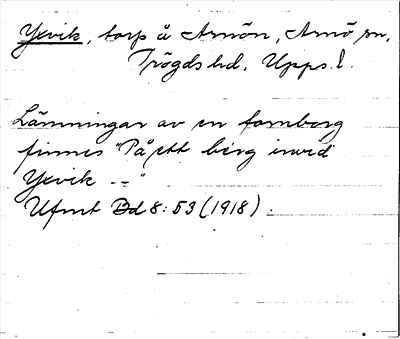 Yxvik, torp å Arnön, Arnö sn,
Trögds hd, Upps. l.
Lämningar av en fornborg
finnes "På ett berg invid
Yxvik --"
Ufmt Bd 8:53 (1918).